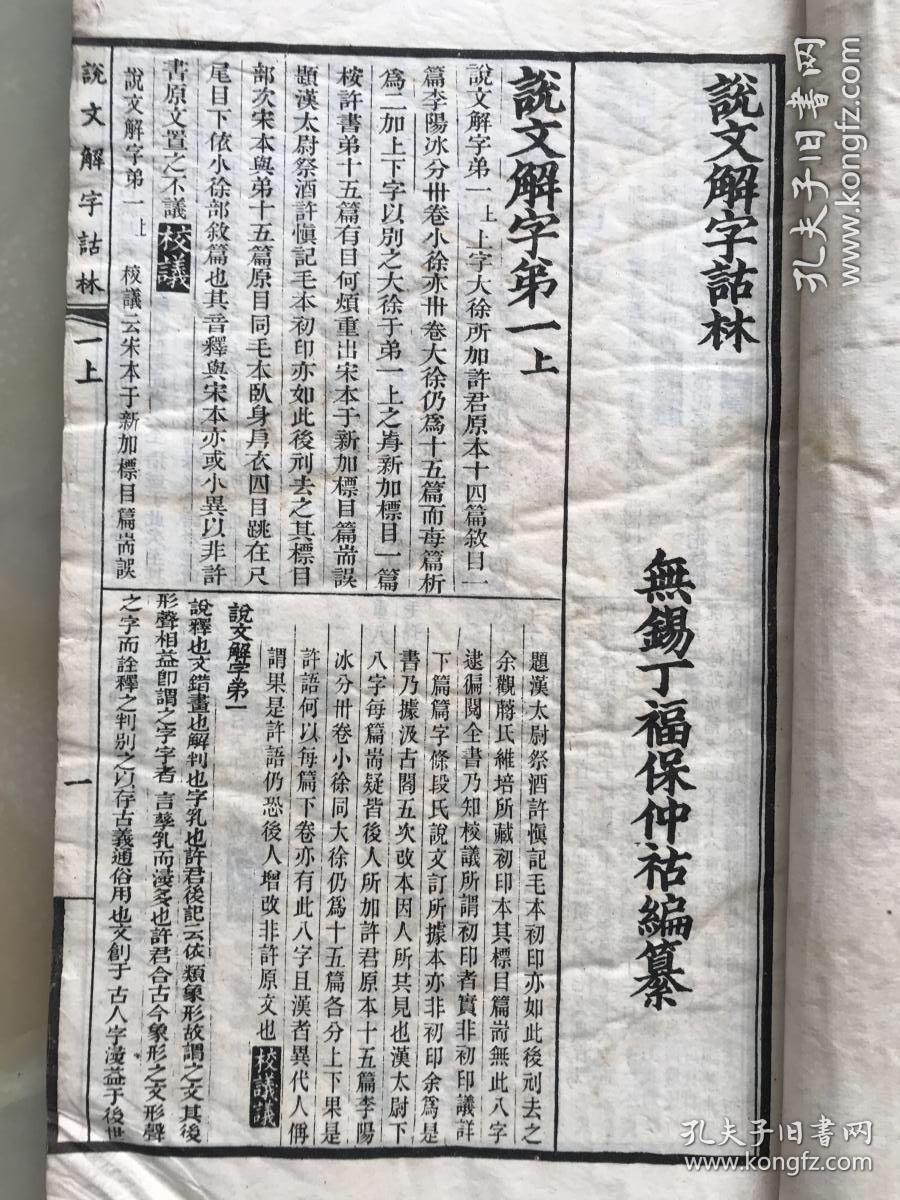 說文解字詁林
無錫丁福保仲祜編纂
說文解字弟一上
說文解字弟一上 上字大徐所加許君原本十四篇敘目一
篇李陽冰分卅卷小徐亦卅卷大徐仍爲十五篇而每篇析
爲二加上下字以別之大徐于弟一上之歬新加標目一篇
桉許書弟十五篇有目何煩重出宋本于新加標目篇耑誤
題漢太尉祭酒許愼記毛本初印亦如此後刓去之其標目
部次宋本與弟十五篇原目同毛本臥身㐆衣四目跳在尺
尾目下依小徐部敘篇也其音釋與宋本亦或小異以非許
書原文置之不議 校議
說文解字弟一上 校議云宋本于新加標目篇耑誤
題漢太尉祭酒許愼記毛本初印亦如此後刓去之
余觀蔣氏維培所藏初印本其標目篇耑無此八字
逮徧閱全書乃知校議所謂初印者實非初印議詳
下篇篇字條段氏說文訂所據本亦非初印余爲是
書乃據汲古閣五次改本因人所共見也漢太尉下
八字每篇耑疑皆後人所加許君原本十五篇李陽
冰分卅卷小徐同大徐仍爲十五篇各分上下果是
許語何以每篇下卷亦有此八字且漢者異代人偁
謂果是許語仍恐後人增改非許原文也 校議議
說文解字弟一
說釋也文錯畫也解判也字乳也許君後記云依類象形故謂之文其後
形聲相益卽謂之字字者言孳乳而浸多也許君合古今象形之文形聲
之字而詮釋之判別之以存古義通俗用也文創于古人字浸益于後世
說文解字詁林
一上
一
孔夫子旧书网
www.kongfz.com
孔夫子旧书网
www.kongfz.com